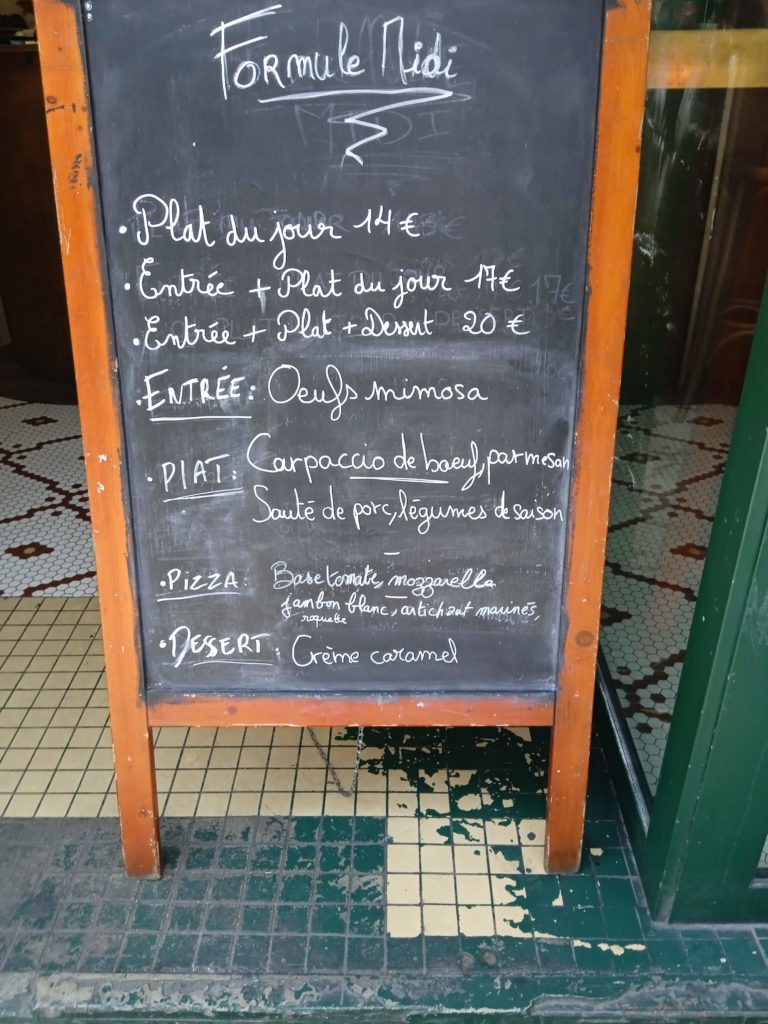 Formule Midi
MIDI
• Plat du jour 14 €
• Entrée + Plat du jour 17€
• Entrée + Plat + Dessert 20 €
• ENTRÉE : Oeufs mimosa
• PLAT : Carpaccio de boeuf, parmesan
Sauté de porc, légumes de saison
• PIZZA : Base tomate, mozzarella
jambon blanc, artichaut marinés,
roquette
• DESSERT : Crème caramel